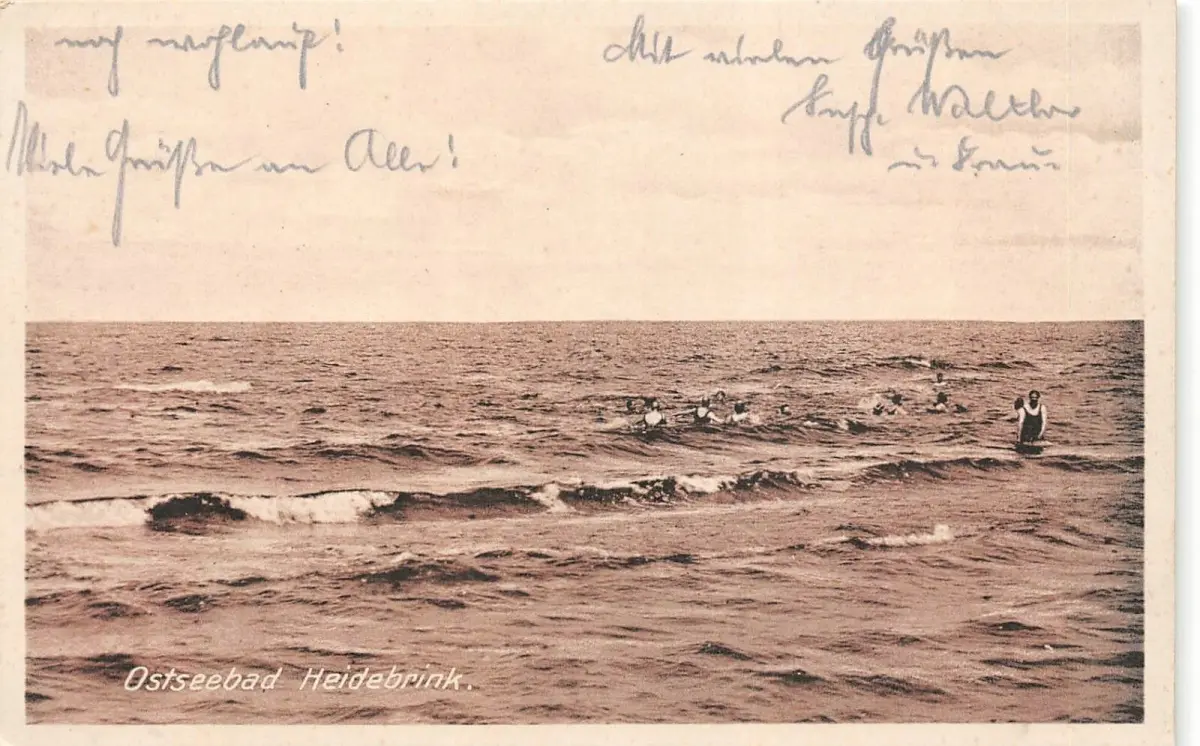 noch wohlauf!
Viele Grüße an Alle!
Mit vielen Grüßen
Walther
u. Frau.
Ostseebad Heidebrink.